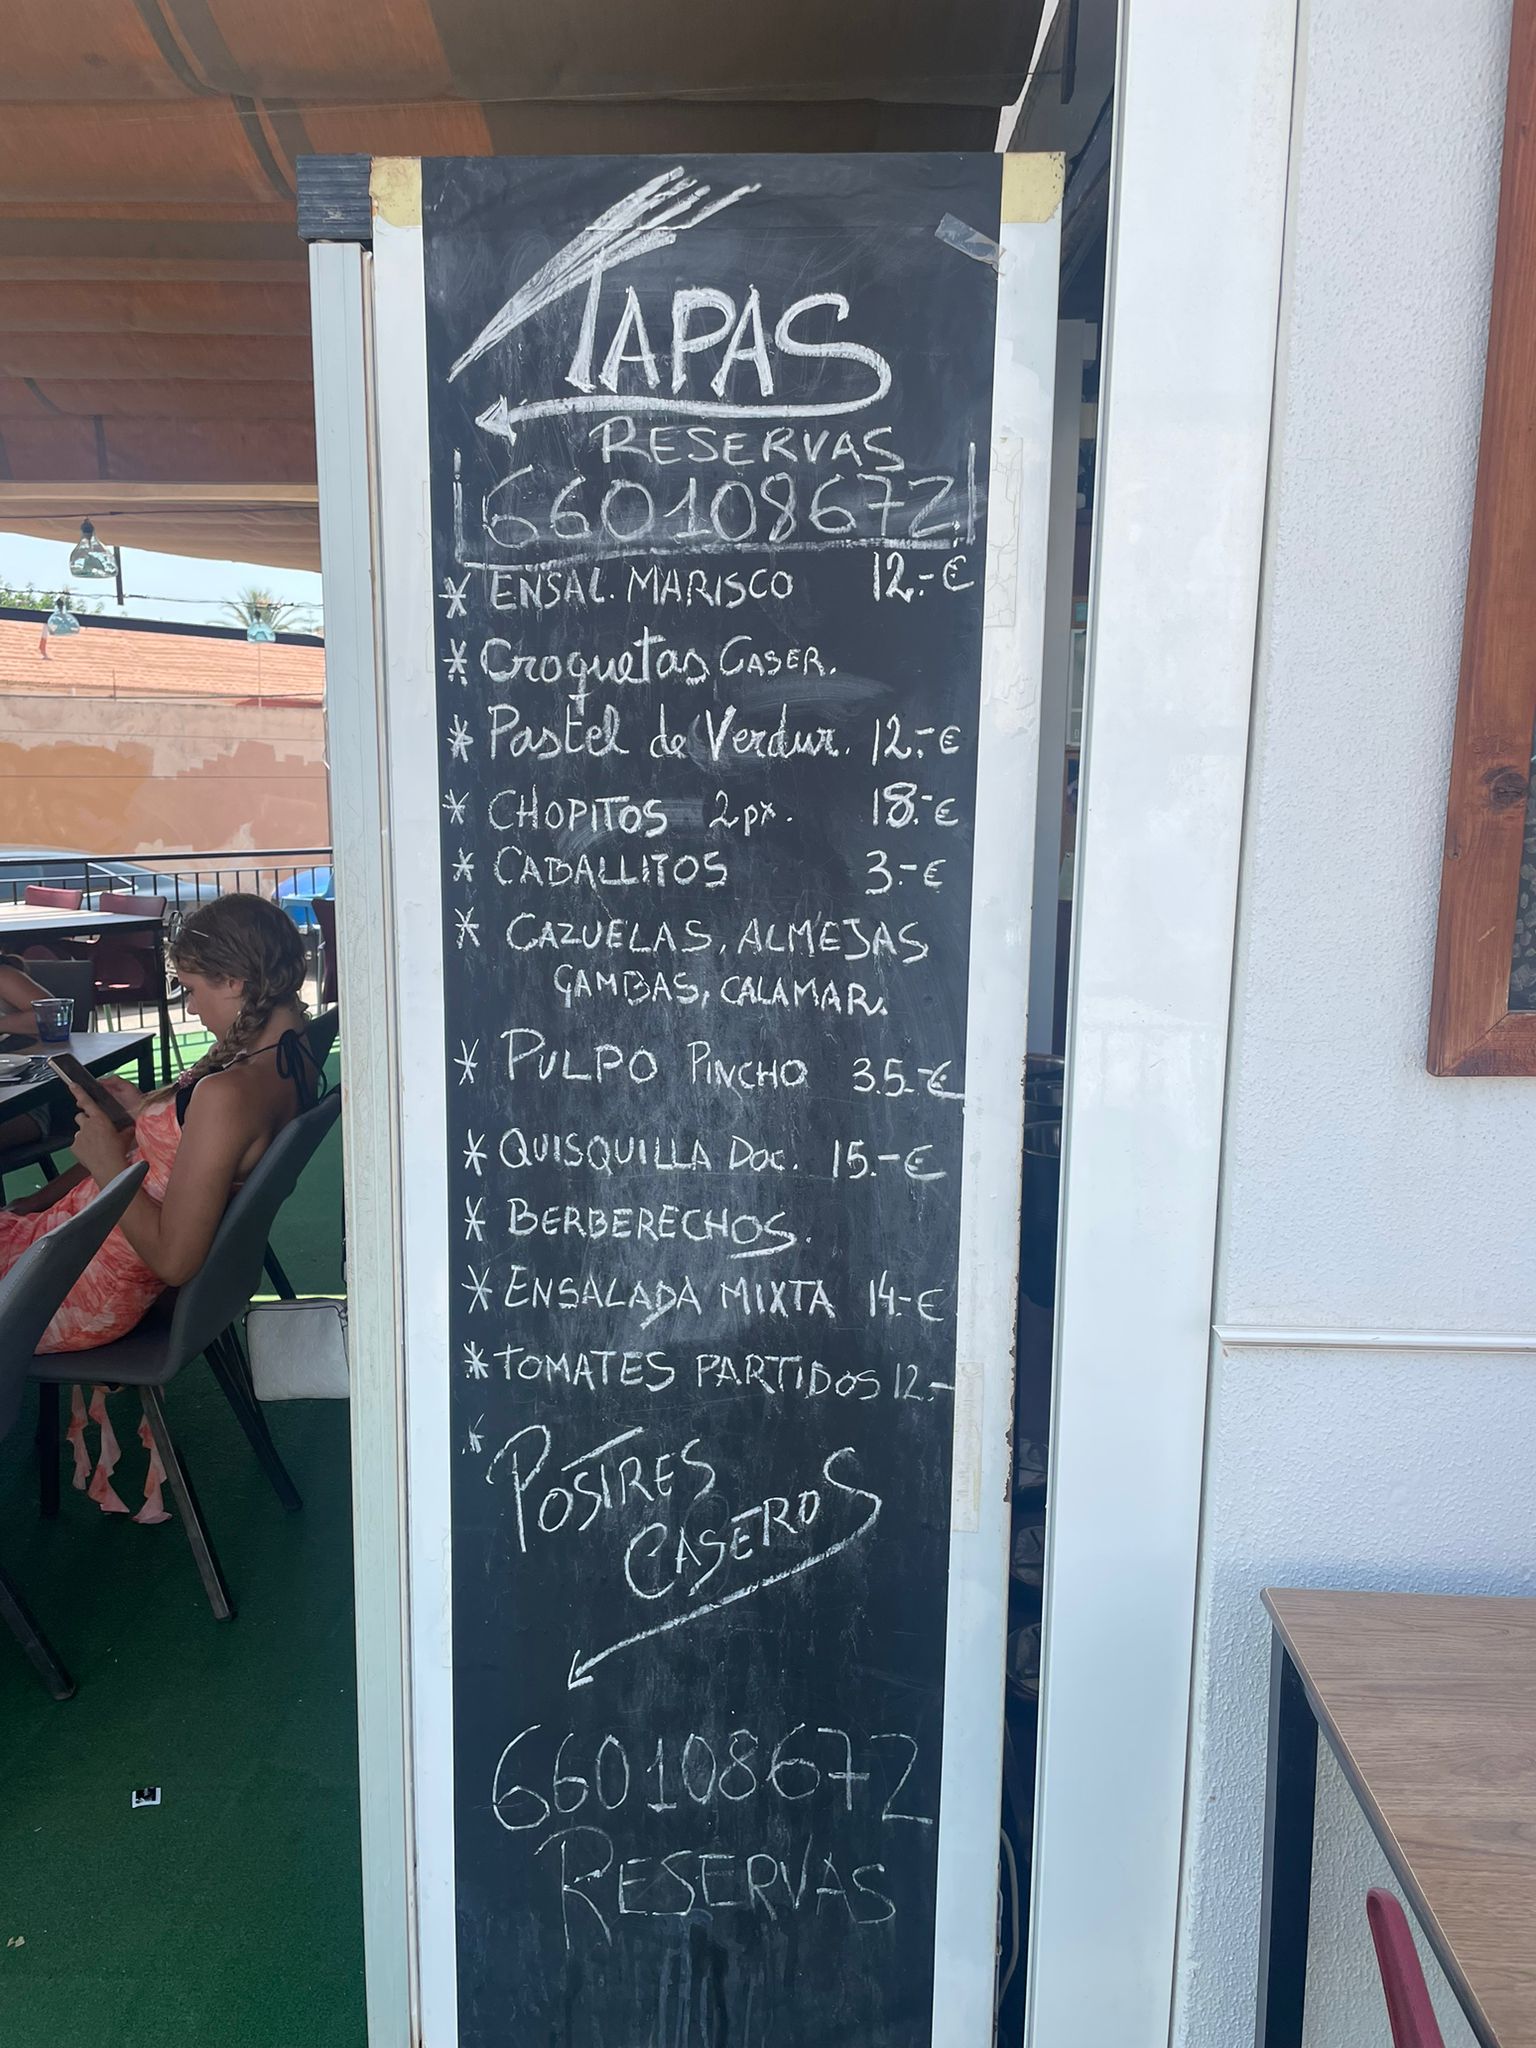 TAPAS
RESERVAS
660108672
* ENSAL. MARISCO 12.-€
* Croquetas CASER.
* Pastel de Verdur. 12.-€
* CHOPITOS 2px. 18.-€
* CABALLITOS 3.-€
* CAZUELAS, ALMEJAS
GAMBAS, CALAMAR.
* PULPO PINCHO 3.5.-€
* QUISQUILLA DOC. 15.-€
* BERBERECHOS.
* ENSALADA MIXTA 14.-€
* TOMATES PARTIDOS 12.-
* POSTRES
CASEROS
660108672
RESERVAS